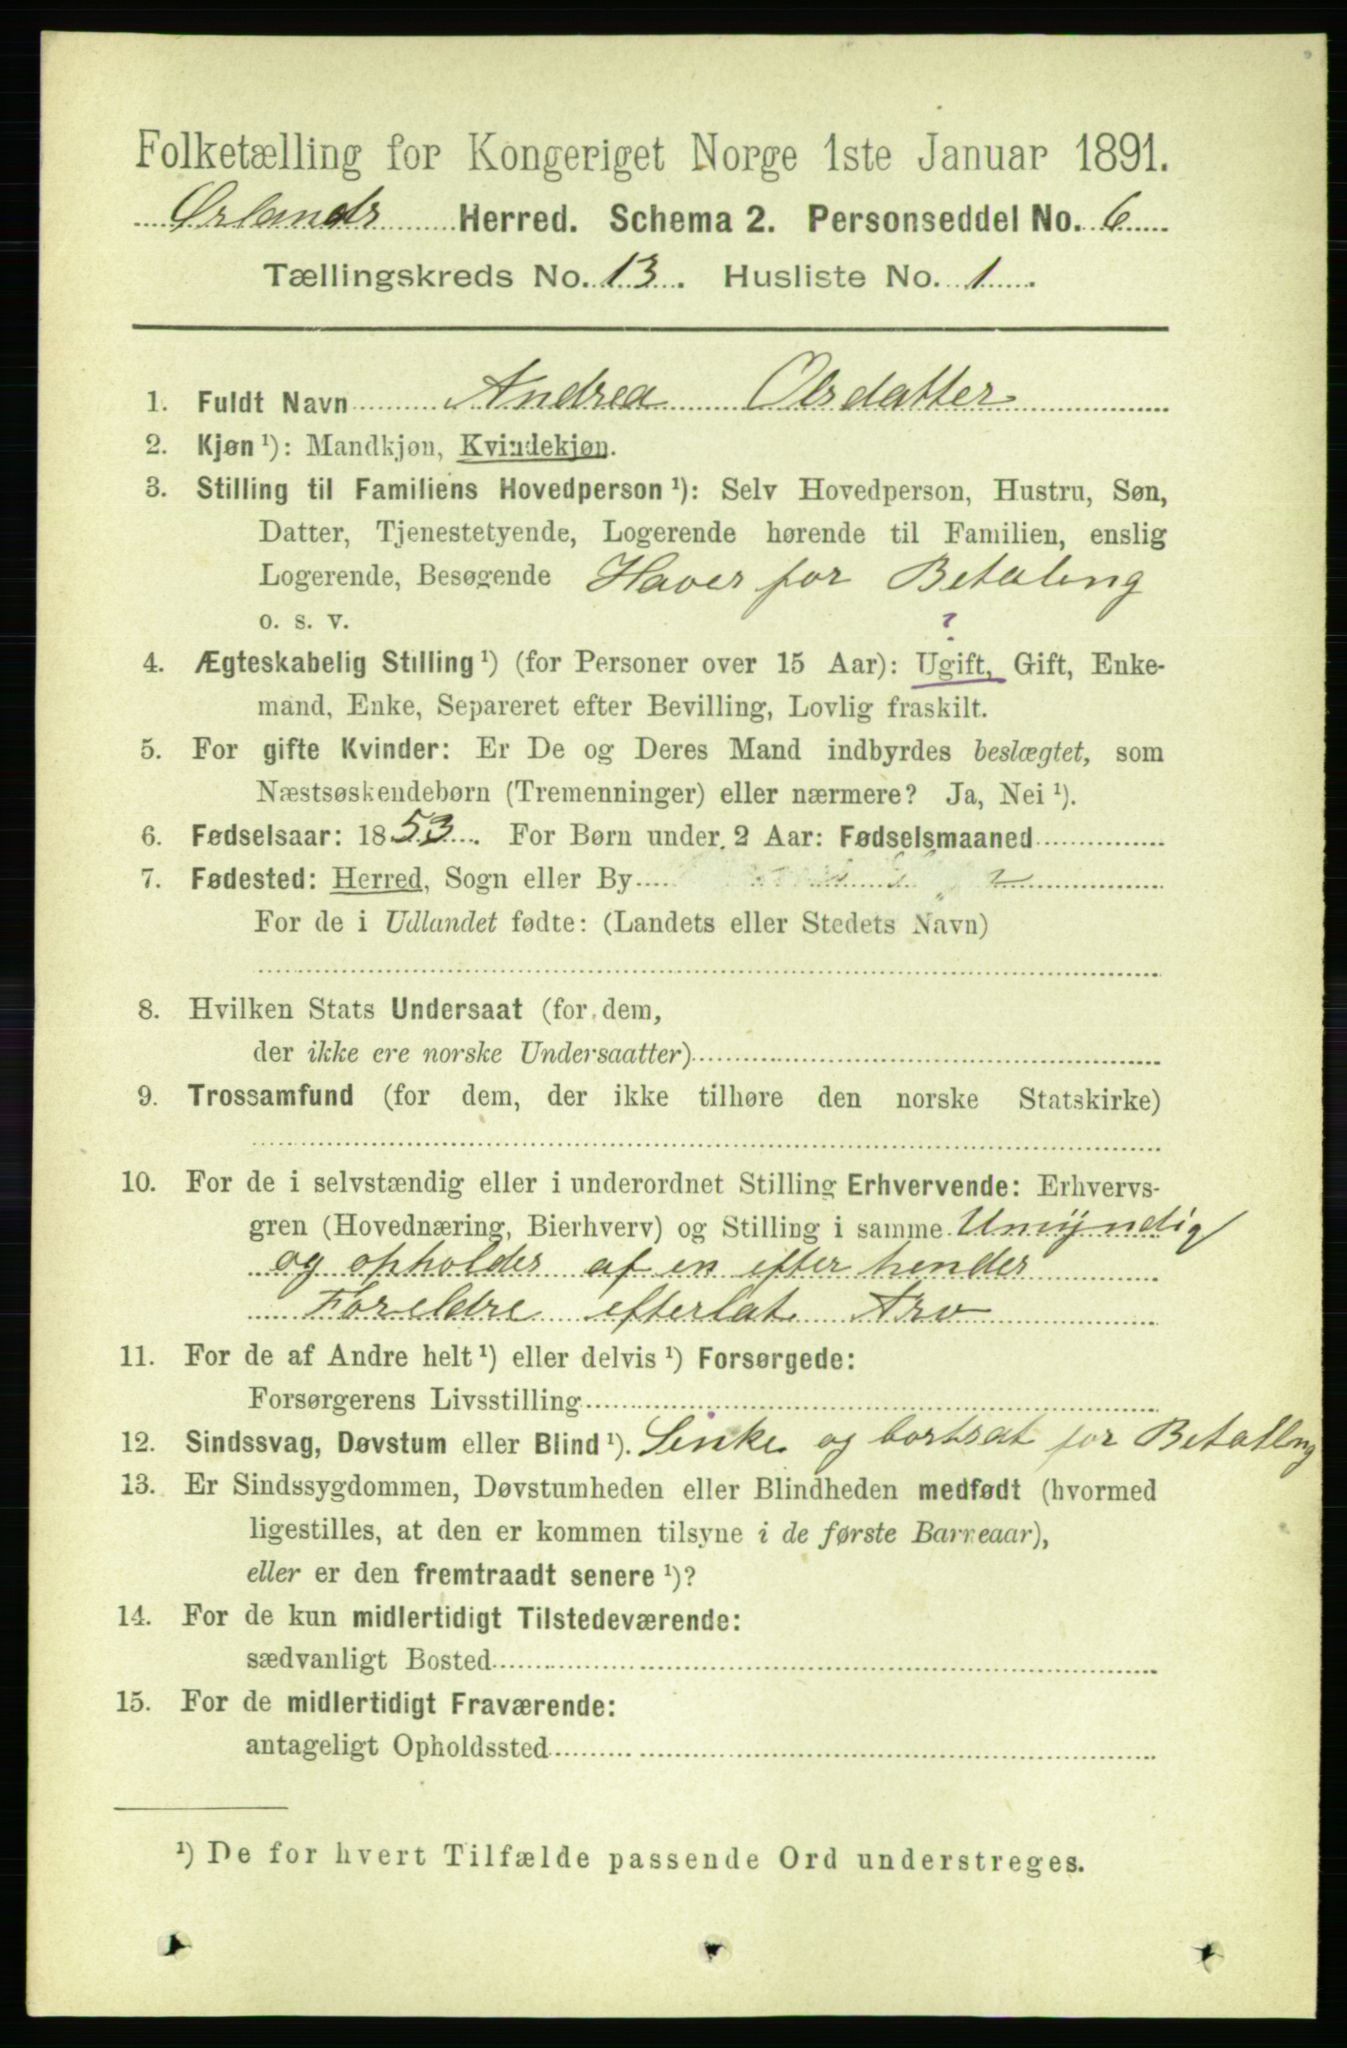 Folketælling for Kongeriget Norge 1ste Januar 1891.
Ørlands Herred. Schema 2. Personseddel No. 6
Tællingskreds No. 13. Husliste No. 1
1. Fuldt Navn Andrea Olsdatter
2. Kjøn ¹): Mandkjøn, Kvindekjøn.
3. Stilling til Familiens Hovedperson ¹): Selv Hovedperson, Hustru, Søn,
Datter, Tjenestetyende, Logerende hørende til Familien, enslig
Logerende, Besøgende Haves for Betaling
o. s. v.
?
4. Ægteskabelig Stilling ¹) (for Personer over 15 Aar): Ugift, Gift, Enke-
mand, Enke, Separeret efter Bevilling, Lovlig fraskilt.
5. For gifte Kvinder: Er De og Deres Mand indbyrdes beslægtet, som
Næstsøskendebørn (Tremenninger) eller nærmere? Ja, Nei ¹).
6. Fødselsaar: 1853. For Børn under 2 Aar: Fødselsmaaned
7. Fødested: Herred, Sogn eller By
For de i Udlandet fødte: (Landets eller Stedets Navn)
8. Hvilken Stats Undersaat (for dem,
der ikke ere norske Undersaatter)
9. Trossamfund (for dem, der ikke tilhøre den norske Statskirke)
10. For de i selvstændig eller i underordnet Stilling Erhvervende: Erhvervs-
gren (Hovednæring, Bierhverv) og Stilling i samme Umÿndig
og opholdes af en efter hendes
Foreldre efterlat Arv
11. For de af Andre helt ¹) eller delvis ¹) Forsørgede:
Forsørgerens Livsstilling
12. Sindssvag, Døvstum eller Blind ¹). Sinke og bortsat for Betalling
13. Er Sindssygdommen, Døvstumheden eller Blindheden medfødt (hvormed
ligestilles, at den er kommen tilsyne i de første Barneaar),
eller er den fremtraadt senere ¹)?
14. For de kun midlertidigt Tilstedeværende:
sædvanligt Bosted
15. For de midlertidigt Fraværende:
antageligt Opholdssted
¹) De for hvert Tilfælde passende Ord understreges.